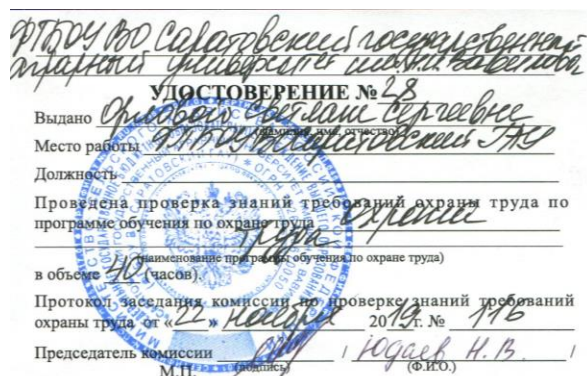 ФГБОУ ВО Саратовский государственный
аграрный университет им. Н.И. Вавилова
УДОСТОВЕРЕНИЕ № 28
Выдано Орловой Светлане Сергеевне
(фамилия, имя, отчество)
Место работы ФГБОУ ВО Саратовский ГАУ
Должность
Проведена проверка знаний требований охраны труда по
программе обучения по охране труда охрана
труда
(наименование программы обучения по охране труда)
в объеме 40 (часов).
Протокол заседания комиссии по проверке знаний требований
охраны труда от «22» ноября 2019г. № 116
Председатель комиссии / Юдаев Н.В. /
М.П. (подпись) (Ф.И.О.)